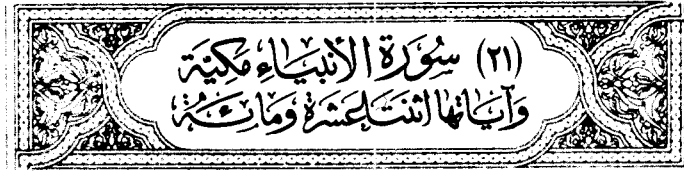 (٢١) سُورَة الأَنبيَاءِ مَكيَّة
وَآياتها اثنَتَا عَشرَة وَمائَة